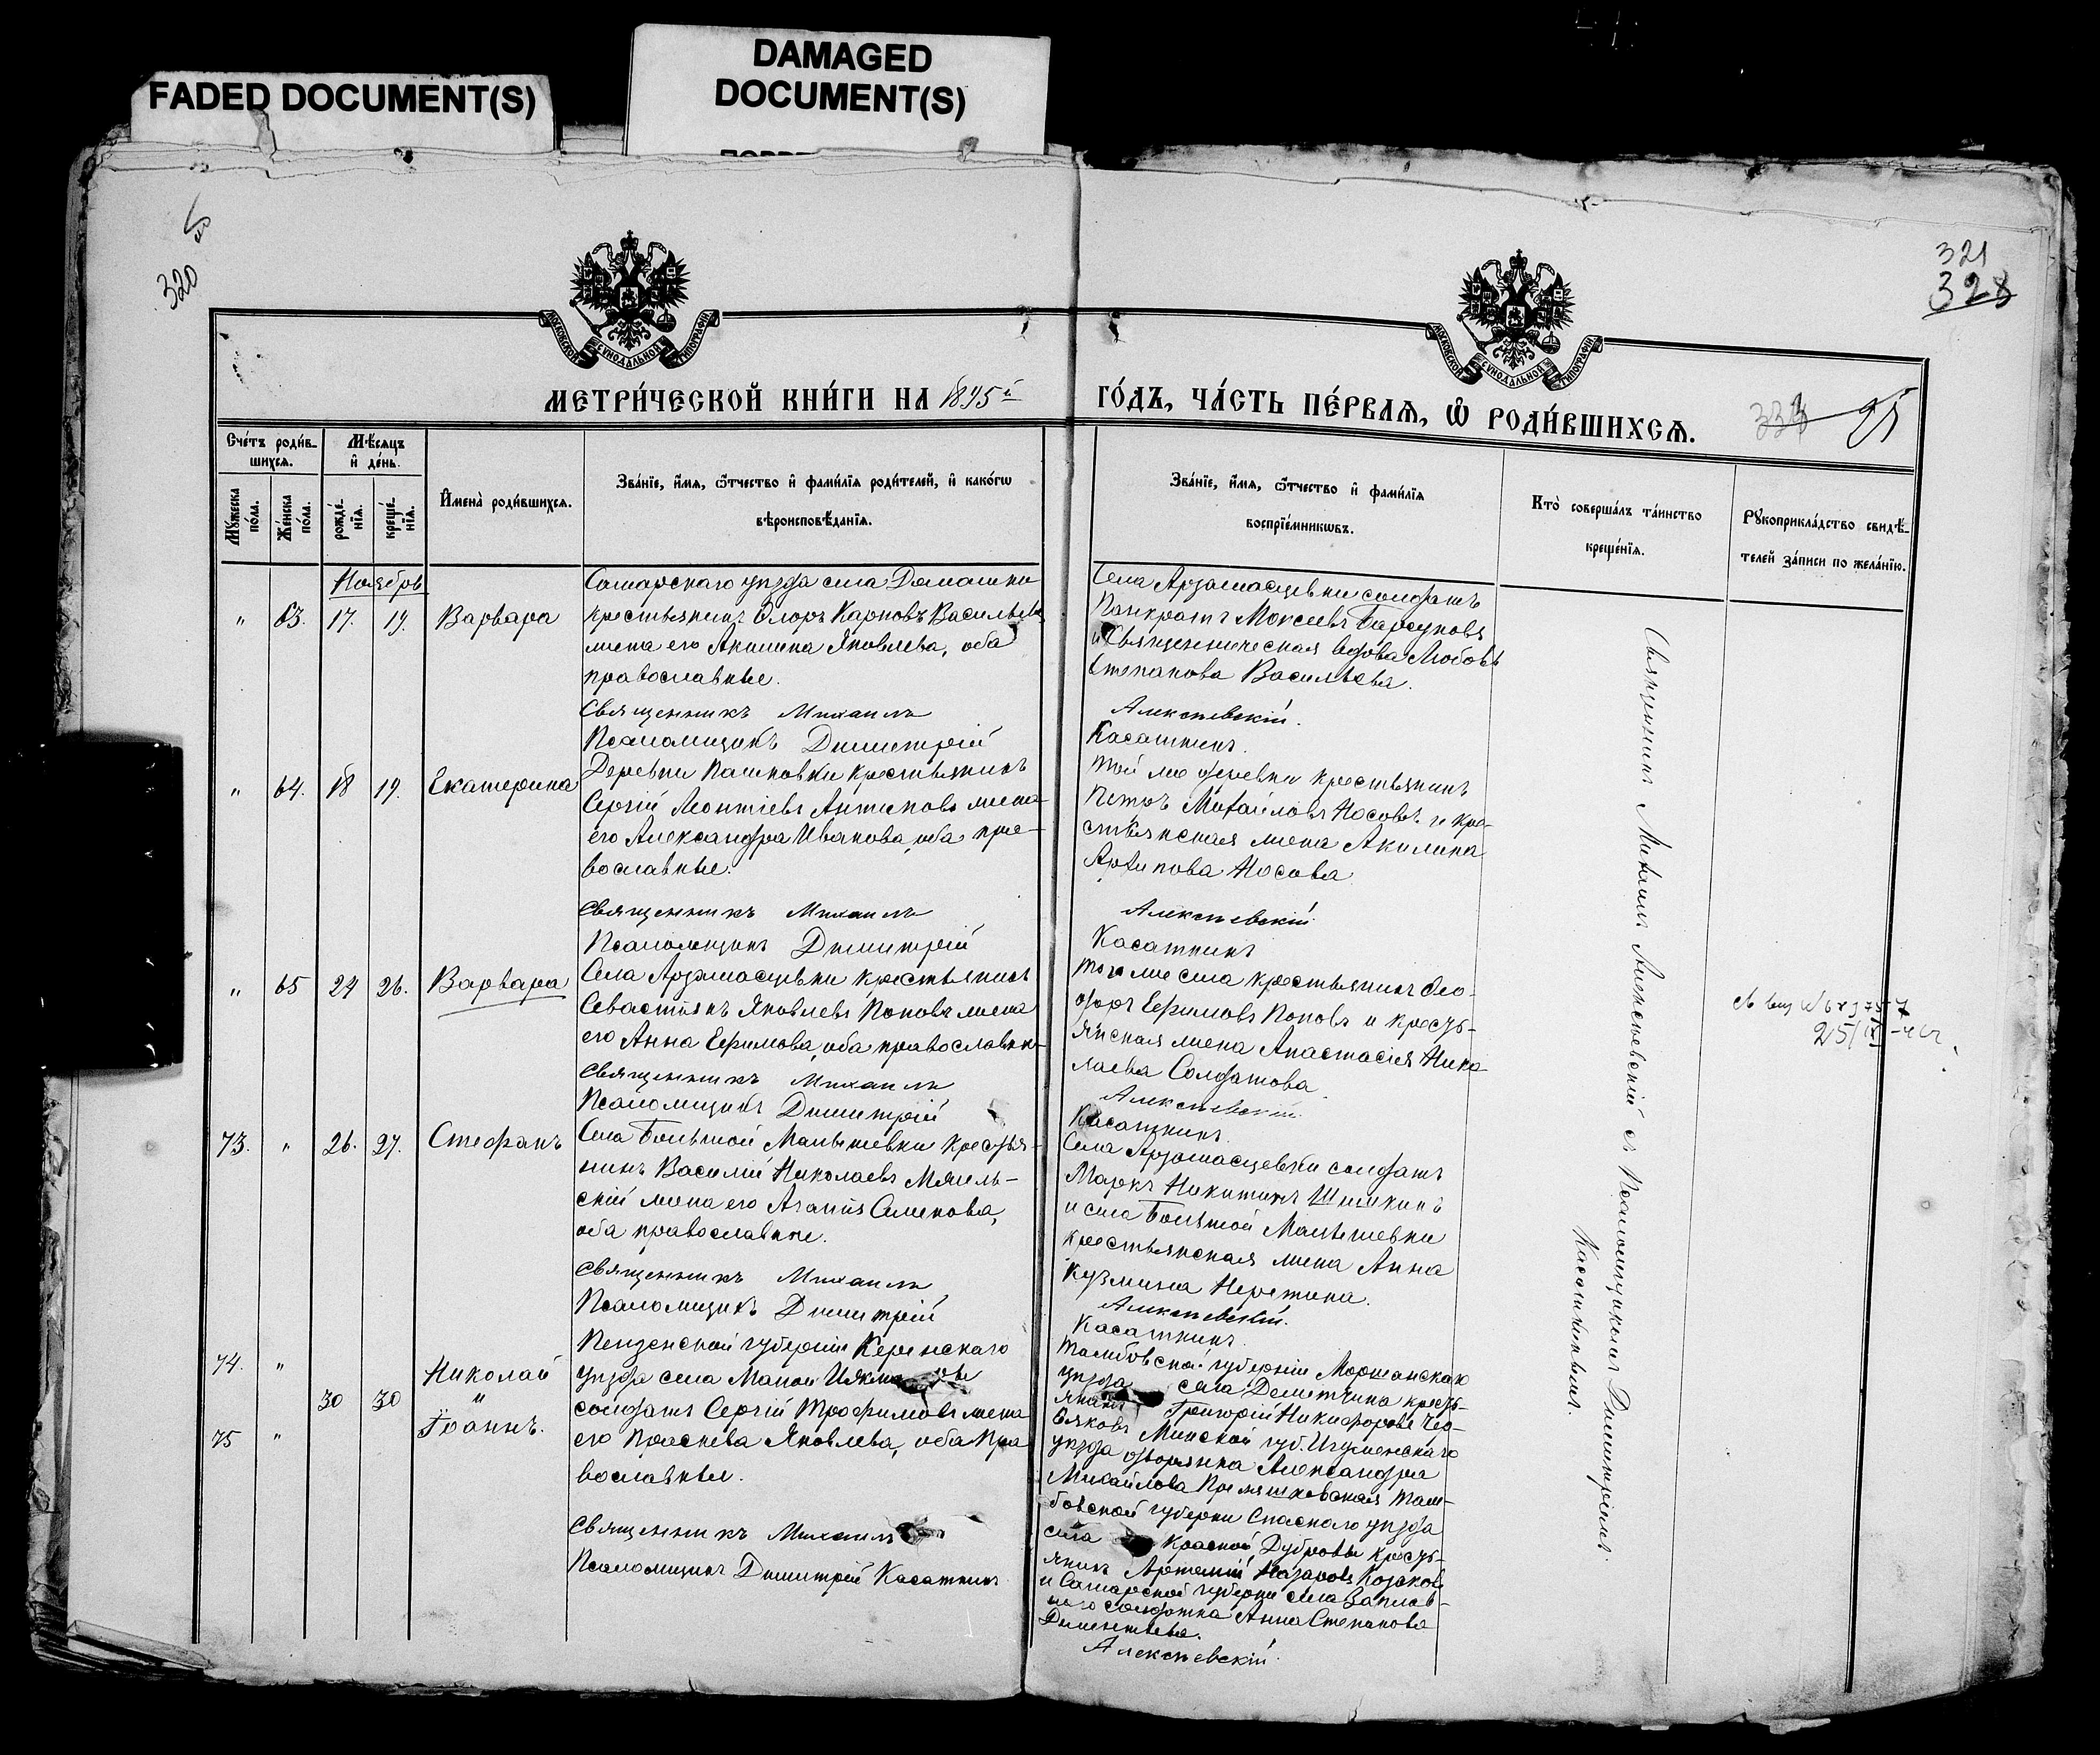 FADED DOCUMENT(S)
DAMAGED
DOCUMENT(S)
320
321
328
МОСКОВСКОЙ СѴНОДАЛЬНОЙ ТИПОГРАФІИ
МОСКОВСКОЙ СѴНОДАЛЬНОЙ ТИПОГРАФІИ
МЕТРИ́ЧЕСКОЙ КНИ́ГИ НА 1895й
ГО́ДЪ, ЧА́СТЬ ПЕ́РВАѦ, Ѡ РОДИ́ВШИХСѦ.
Сче́тъ роди́в-
шихсѧ.
Мѣ́сѧцъ
и҆ де́нь.
Мꙋ́жеска
по́ла.
Же́нска
по́ла.
рожде́-
нїѧ.
креще́-
нїѧ.
И҆мена̀ роди́вшихсѧ.
Зва́нїе, и҆́мѧ, ѻ҆́тчество и҆ фами́лїѧ роди́телей, и҆ како́гѡ
вѣроисповѣ́данїѧ.
Зва́нїе, и҆́мѧ, ѻ҆́тчество и҆ фами́лїѧ
воспрїе́мникѡвъ.
Кто̀ соверша́лъ та́инство
креще́нїѧ.
Рꙋкоприкла́дство свидѣ́-
телей за́писи по жела́нїю.
Ноябрь
" 63. 17. 19. Варвара
Самарскаго уѣзда села Домашки
крестьянинъ Флоръ Карповъ Васильевъ
жена его Акилина Яковлева, оба
православные.
Священникъ Михаилъ
Псаломщикъ Димитрій
Села Арзамасцевки солдатъ
Панкратъ Моисеевъ Барсуковъ
и Священническая вдова Любовь
Степанова Васильева.
Алексѣевскій.
Касаткинъ.
" 64. 18 19. Екатерина
Деревни Пашковки крестьянинъ
Сергій Леонтіевъ Антиповъ жена
его Александра Иванова, оба пра-
вославные.
Священникъ Михаилъ
Псаломщикъ Димитрій
Той же деревни крестьянинъ
Петръ Михайловъ Носовъ и кре-
стьянская жена Акилина
Архипова Носова
Алексѣевскій.
Касаткинъ
" 65 24 26. Варвара
Села Арзамасцевки крестьянинъ
Севастіянъ Яковлевъ Поповъ жена
его Анна Ефимова, оба православны
Священникъ Михаилъ
Псаломщикъ Димитрій
Того же села крестьянинъ Ѳео-
доръ Ефимовъ Поповъ и кресть-
янская жена Анастасія Нико-
лаева Солдатова.
Алексѣевскій.
Касаткинъ.
73. " 26. 27. Стефанъ
Села Большой Малышевки крестья-
нинъ Василій Николаевъ
скій жена его Агапія Семенова,
оба православные.
Священникъ Михаилъ
Псаломщикъ Димитрій
Села Арзамасцевки солдатъ
Маркъ Никитинъ Шишкинъ
и села Большой Малышевки
крестьянская жена Анна
Кузьмина Неретина.
Алексѣевскій.
Касаткинъ.
74. " Николай
30 30 "
75 " Іоаннъ.
Пензенской губерніи Керенскаго
уѣзда села Малой
солдатъ Сергій Трофимовъ жена
его Яковлева, оба пра
вославные.
Священникъ Михаилъ
Псаломщикъ Димитрій Касаткинъ
Тамбовской губерніи Моршанскаго
уѣзда села кресть-
янинъ Григорій Никифоровъ Чер-
вяковъ Минской губ. Игуменскаго
уѣзда дворянка Александра
Михайлова Там-
бовской губерніи Спаскаго уѣзда
села Красной Дубровы кресть-
янинъ Артемій Назаровъ Козаковъ
и Самарской губерніи села Заплав-
наго солдатка Анна Степанова
Дементьева.
Алексѣевскій.
Священникъ Михаилъ Алексѣевскій съ Псаломщикомъ Димитріемъ
Касаткинымъ.